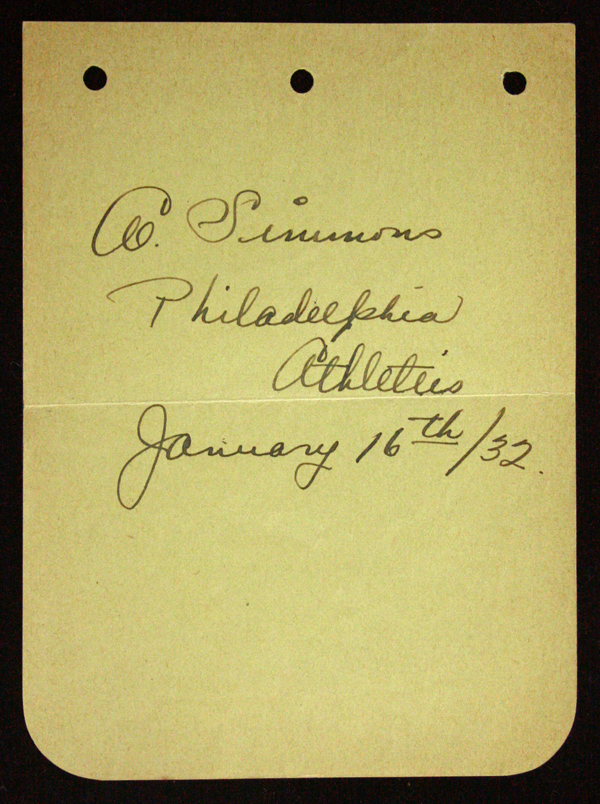 Al. Simmons
Philadelphia
Athletics
January 16th/32.